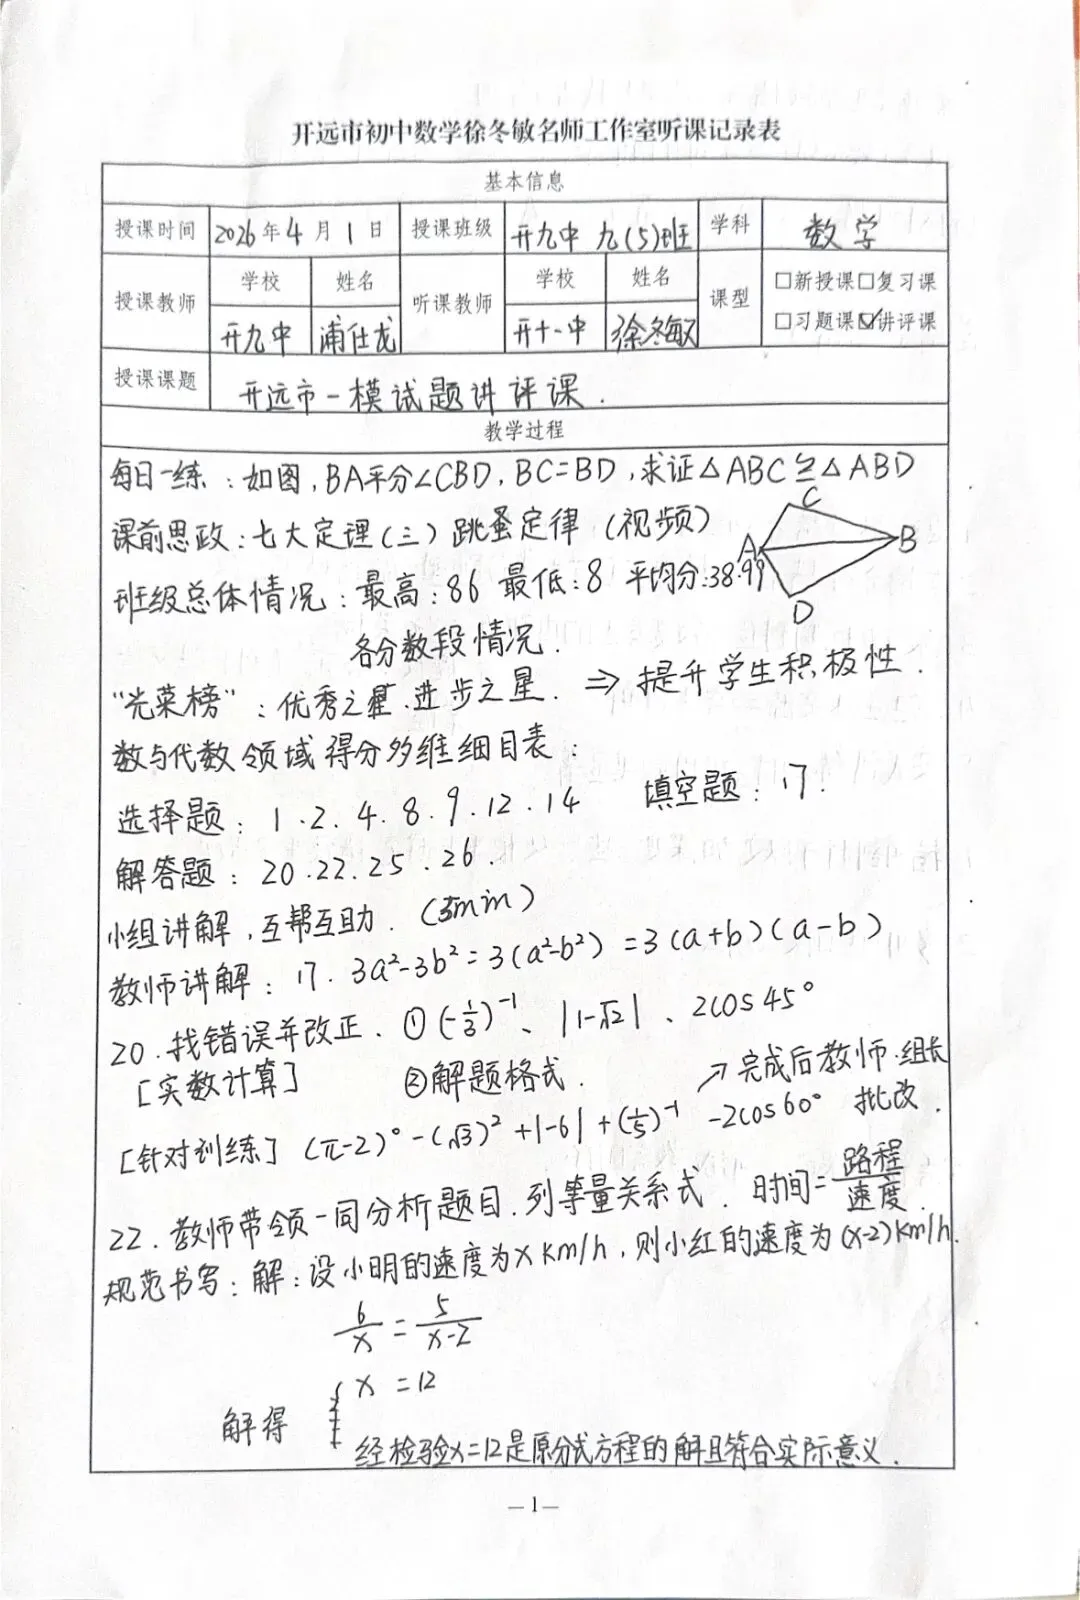 开远市初中数学徐冬敏名师工作室听课记录表
基本信息
授课时间 2026年4月1日 授课班级 开九中 九(5)班 学科 数学
授课教师 学校 姓名 听课教师 学校 姓名 课型 □新授课□复习课
开九中 浦仕龙 开十一中 徐冬敏 □习题课☑讲评课
授课课题 开远市一模试题讲评课.
教学过程
每日一练：如图,BA平分∠CBD,BC=BD,求证△ABC≌△ABD
课前思政：七大定理(三)跳蚤定律(视频)
C
A
B
D
班级总体情况：最高:86 最低:8 平均分:38.99
各分数段情况.
“光荣榜”：优秀之星.进步之星. ⇒提升学生积极性.
数与代数领域得分多维细目表：
选择题：1.2.4.8.9.12.14 填空题：17.
解答题：20.22.25.26.
小组讲解,互帮互助.(3min)
教师讲解：17. 3a²-3b²=3(a²-b²)=3(a+b)(a-b)
20.找错误并改正. ①(-1/3)⁻¹、|1-√2|、2cos45°
[实数计算] ②解题格式. ↗完成后教师.组长
[针对训练] (π-2)°-(√3)²+|-6|+(1/5)⁻¹-2cos60° 批改.
22.教师带领一同分析题目.列等量关系式. 时间=路程/速度.
规范书写：解：设小明的速度为x km/h,则小红的速度为(x-2)km/h.
6/x=5/(x-2)
x=12
解得
经检验x=12是原分式方程的解且符合实际意义.
—1—